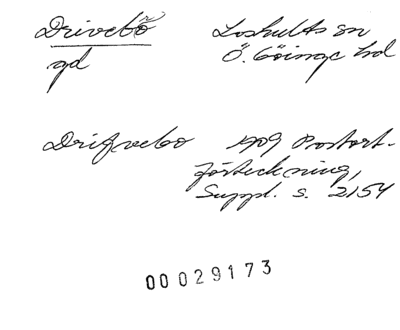 Drivebo Loshults sn
gd Ö. Göinge hd
Drifvebo 1909 Postort-
förteckning,
Suppl. s. 2154
00029173